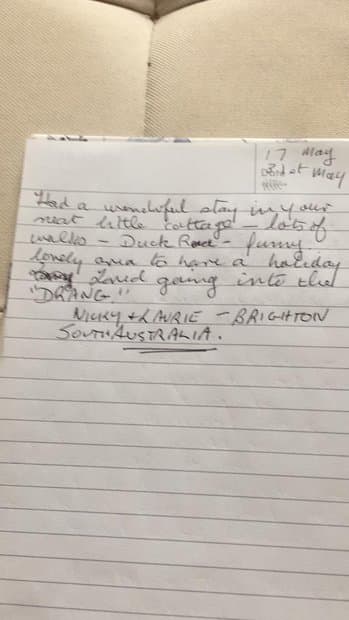 17 May
23rd of May
Had a wonderful stay in your
neat little cottage - lots of
walks - Duck Race - funny
lovely area to have a holiday
Loved going into the
"DRANG"
NICKY & LAURIE - BRIGHTON
SOUTH AUSTRALIA.